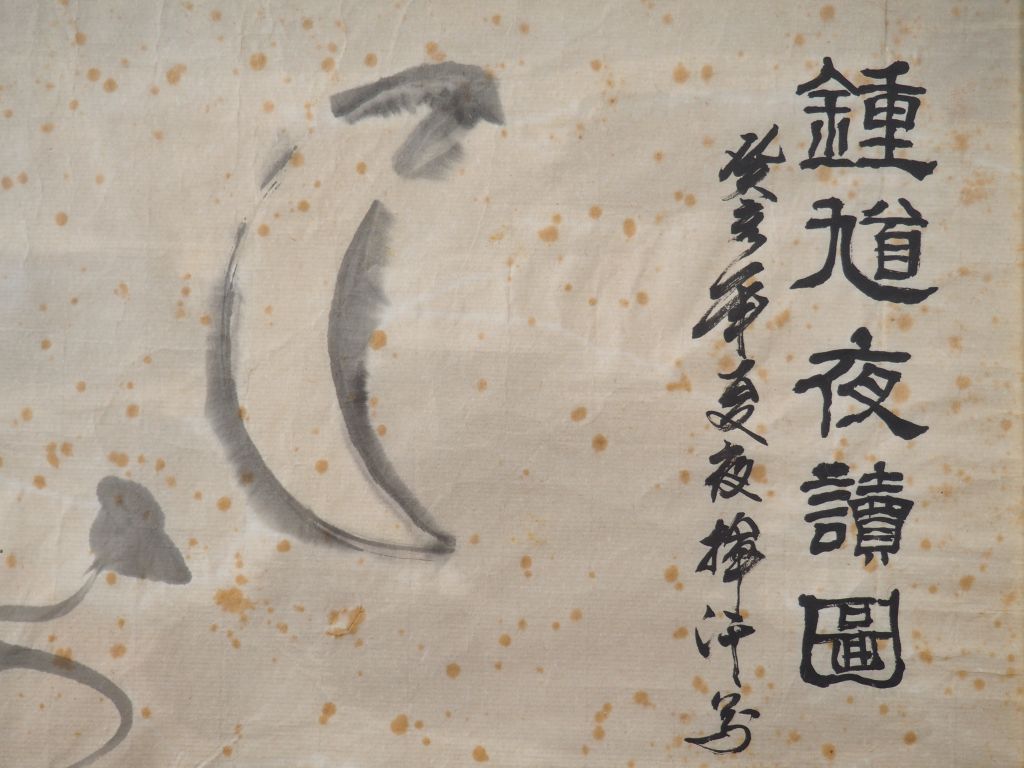 鍾馗夜讀圖
癸亥年夏夜揮汗写